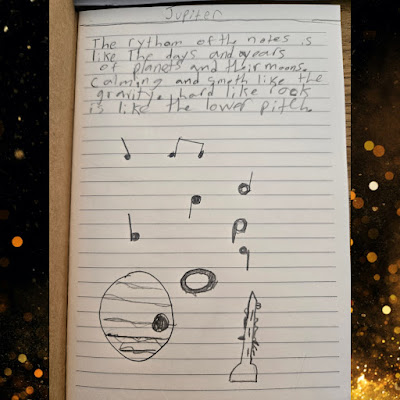 Jupiter
The rythom of the notes is
like The days and years
of planets and their moons.
Calming and smoth like the
gravity. hard like rock
is like the lower pitch.